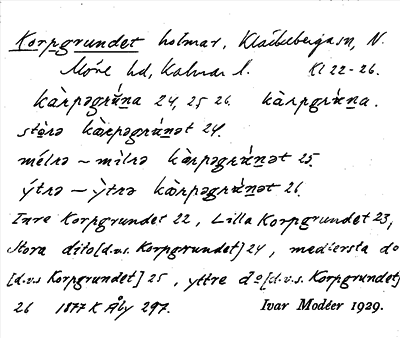 Korpgrundet holmar, Kläckeberga sn, N.
Möre hd, Kalmar l. Kl 22-26.
kàrpəgrúna 24, 25 26. kàrpgrúna.
stòrə kàrpəgrúnət 24.
mélrə ~ mìlrə kàrpəgrúnət 25.
ýtrə ~ ỳtrə kàrpəgrúnət 26.
Inre Korpgrundet 22, Lilla Korpgrundet 23,
Stora dito [d.v.s. Korpgrundet] 24, medlersta do
[d.v.s Korpgrundet] 25, yttre do [d.v.s. Korpgrundet]
26 1877 K Åby 297. Ivar Modéer 1929.